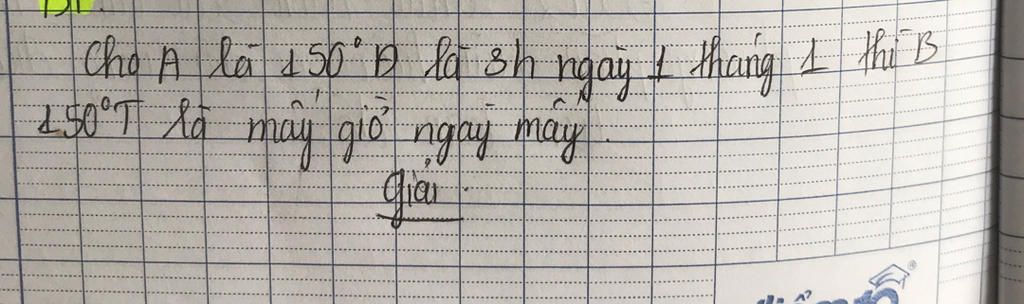 Cho A là 150° Đ là 3h ngày 1 tháng 1 thì B
150°T là mấy giờ ngày mấy.
Giải.